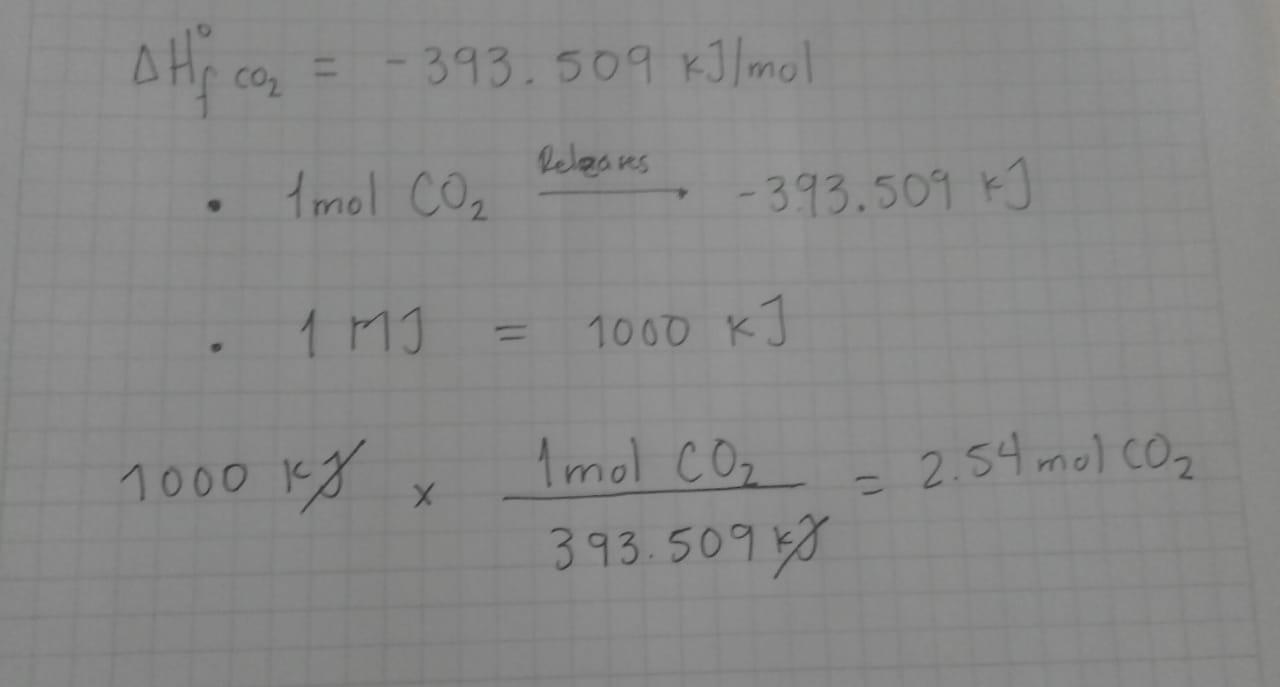 ΔH°f CO₂ = -393.509 kJ/mol
• 1mol CO₂ Releases → -393.509 kJ
• 1 MJ = 1000 kJ
1000 kJ × 1mol CO₂ / 393.509 kJ = 2.54 mol CO₂